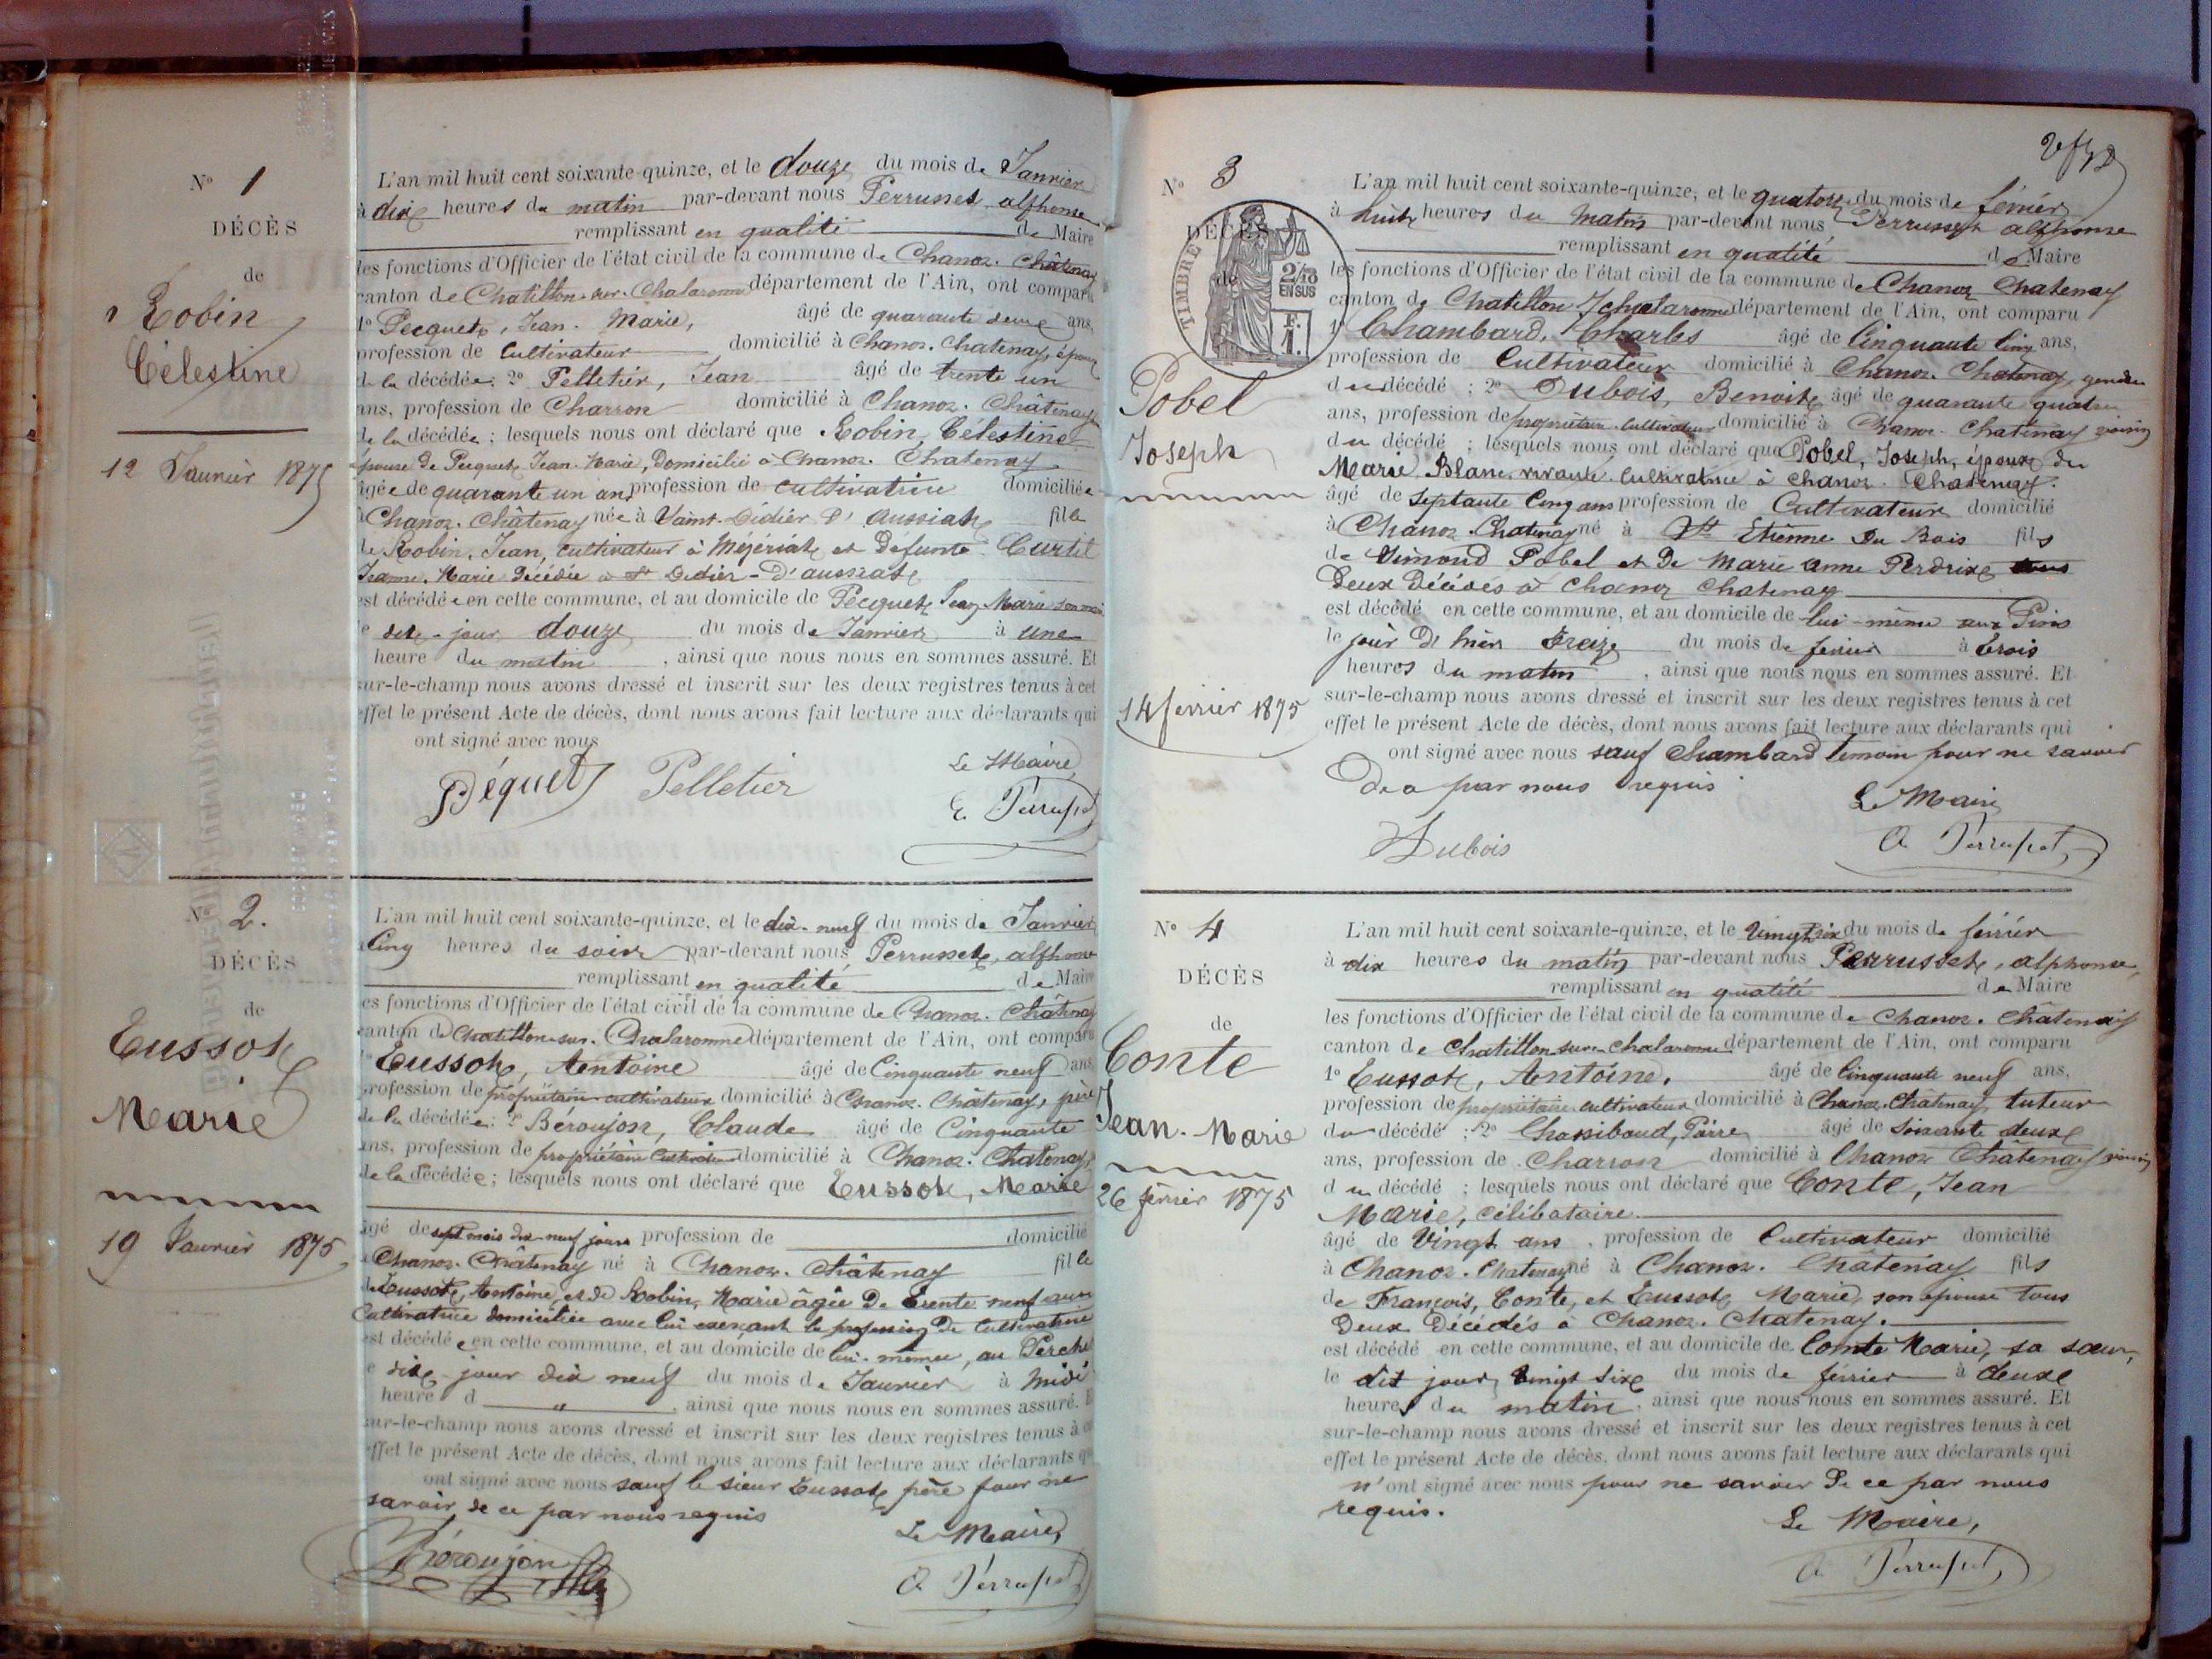 N° 1
DÉCÈS
de
Robin
Célestine
12 Janvier 1875
L'an mil huit cent soixante-quinze, et le douze du mois de Janvier
à dix heures du matin par-devant nous Perrusset alphonse
remplissant en qualité de Maire
les fonctions d'Officier de l'état civil de la commune de Chanoz. Châtenay
canton de Chatillon-sur-Chalaronne département de l'Ain, ont comparu
1° Pecquet, Jean. Marie, âgé de quarante deux ans,
profession de Cultivateur domicilié à Chanoz. Chatenay, époux
de la décédée; 2° Pelletier, Jean âgé de trente un
ans, profession de Charron domicilié à Chanoz. Châtenay
de la décédée; lesquels nous ont déclaré que Robin, Célestine
épouse de Pecquet Jean-Marie, Domicilié à Chanoz. Chatenay
âgée de quarante un ans profession de cultivatrice domiciliée
à Chanoz. Châtenay née à Saint-Didier d'Aussiat fille
de Robin, Jean, cultivateur à Mézériat et défunte Curtil
Jeanne. Marie décédée à St Didier-d'aussiat
est décédée en cette commune, et au domicile de Pecquet Jean Marie son mari
le dit-jour douze du mois de Janvier à une
heure du matin, ainsi que nous nous en sommes assuré. Et
sur-le-champ nous avons dressé et inscrit sur les deux registres tenus à cet
effet le présent Acte de décès, dont nous avons fait lecture aux déclarants qui
ont signé avec nous
Le Maire
Péquet Pelletier Perrusset
N° 2.
DÉCÈS
de
Tussot
Marie
19 Janvier 1875
L'an mil huit cent soixante-quinze, et le dix-neuf du mois de Janvier
à Cinq heures du soir par-devant nous Perrusset, alphonse
remplissant en qualité de Maire
les fonctions d'Officier de l'état civil de la commune de Chanoz. Châtenay
canton de Chatillon-sur-Chalaronne département de l'Ain, ont comparu
1° Tussot, Antoine âgé de Cinquante neuf ans,
profession de propriétaire-cultivateur domicilié à Chanoz. Châtenay, père
de la décédée; 2° Béroujon, Claude âgé de Cinquante
ans, profession de propriétaire Cultivateur domicilié à Chanoz. Chatenay,
de la décédée; lesquels nous ont déclaré que Tussot, Marie
âgé de sept mois dix-neuf jours profession de domicilié
à Chanoz. Châtenay né à Chanoz. Châtenay fille
de Tussot, Antoine, et de Robin, Marie âgée de trente neuf ans
Cultivatrice domiciliée avec lui exerçant la profession de Cultivatrice
est décédée en cette commune, et au domicile de lui-même, au Perche
le dit-jour dix neuf du mois de Janvier à midi
heure d " , ainsi que nous nous en sommes assuré. Et
sur-le-champ nous avons dressé et inscrit sur les deux registres tenus à cet
effet le présent Acte de décès, dont nous avons fait lecture aux déclarants qui
ont signé avec nous sauf le sieur Tussot père pour ne
savoir de ce par nous requis
Le Maire,
Béroujon A Perrusset
N° 3
DÉCÈS
de
TIMBRE
2/10
EN SUS
F.
1.
Pobel
Joseph
14 février 1875
L'an mil huit cent soixante-quinze, et le quatorze du mois de février
à huit heures du matin par-devant nous Perrusset alphonse
remplissant en qualité de Maire
les fonctions d'Officier de l'état civil de la commune de Chanoz Chatenay
canton de Chatillon s/chalaronne département de l'Ain, ont comparu
1° Chambard, Charles âgé de Cinquante Cinq ans,
profession de Cultivateur domicilié à Chanoz. Chatenay, gendre
du décédé; 2° Dubois, Benoit âgé de quarante quatre
ans, profession de propriétaire-Cultivateur domicilié à Chanoz Chatenay voisin
du décédé; lesquels nous ont déclaré que Pobel, Joseph, époux de
Marie Blanc vivante Cultivatrice à Chanoz. Chatenay.
âgé de Septante Cinq ans profession de Cultivateur domicilié
à Chanoz Chatenay né à St Etienne du Bois fils
de Simond Pobel et de Marie Anne Perdrix tous
deux décédés à Chanoz Chatenay
est décédé en cette commune, et au domicile de lui-même aux Pins
le jour d'hier treize du mois de février à trois
heures du matin, ainsi que nous nous en sommes assuré. Et
sur-le-champ nous avons dressé et inscrit sur les deux registres tenus à cet
effet le présent Acte de décès, dont nous avons fait lecture aux déclarants qui
ont signé avec nous sauf Chambard témoin pour ne savoir
De ce par nous requis
Le Maire
Dubois A Perrusset
N° 4
DÉCÈS
de
Conte
Jean-Marie
26 février 1875
L'an mil huit cent soixante-quinze, et le vingt six du mois de février
à dix heures du matin par-devant nous Perrusset, alphonse,
remplissant en qualité de Maire
les fonctions d'Officier de l'état civil de la commune de Chanoz. Châtenay
canton de Chatillon-sur-Chalaronne département de l'Ain, ont comparu
1° Tussot, Antoine, âgé de Cinquante neuf ans,
profession de propriétaire cultivateur domicilié à Chanoz. Chatenay, tuteur
du décédé; 2° Chassiboud, Pierre âgé de Soixante deux
ans, profession de Charron domicilié à Chanoz Châtenay voisin
du décédé; lesquels nous ont déclaré que Conte, Jean
Marie, célibataire
âgé de Vingt ans, profession de Cultivateur domicilié
à Chanoz. Chatenay né à Chanoz. Châtenay fils
de François, Conte, et Tussot Marie, son épouse tous
deux décédés à Chanoz. Chatenay.
est décédé en cette commune, et au domicile de Comte Marie, sa sœur,
le dit jour, vingt six du mois de février à deux
heures du matin, ainsi que nous nous en sommes assuré. Et
sur-le-champ nous avons dressé et inscrit sur les deux registres tenus à cet
effet le présent Acte de décès, dont nous avons fait lecture aux déclarants qui
n'ont signé avec nous pour ne savoir de ce par nous
requis.
Le Maire,
A Perrusset